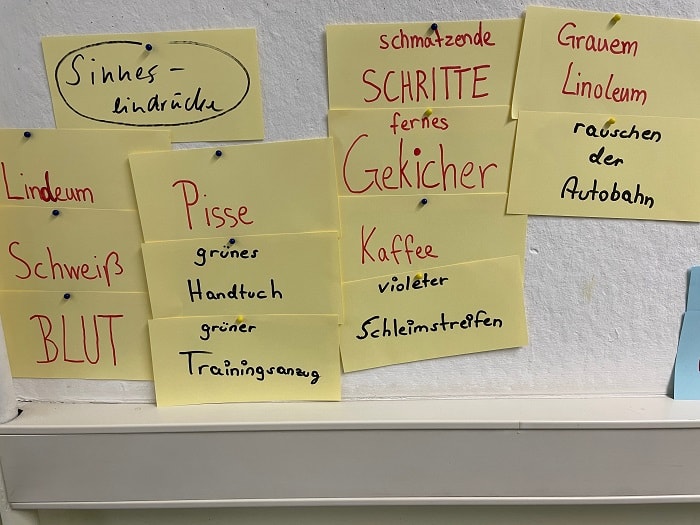 Sinnes-
eindrücke
Lindeum
Schweiß
BLUT
Pisse
grünes
Handtuch
grüner
Trainingsanzug
schmatzende
SCHRITTE
fernes
Gekicher
Kaffee
violeter
Schleimstreifen
Grauem
Linoleum
rauschen
der
Autobahn